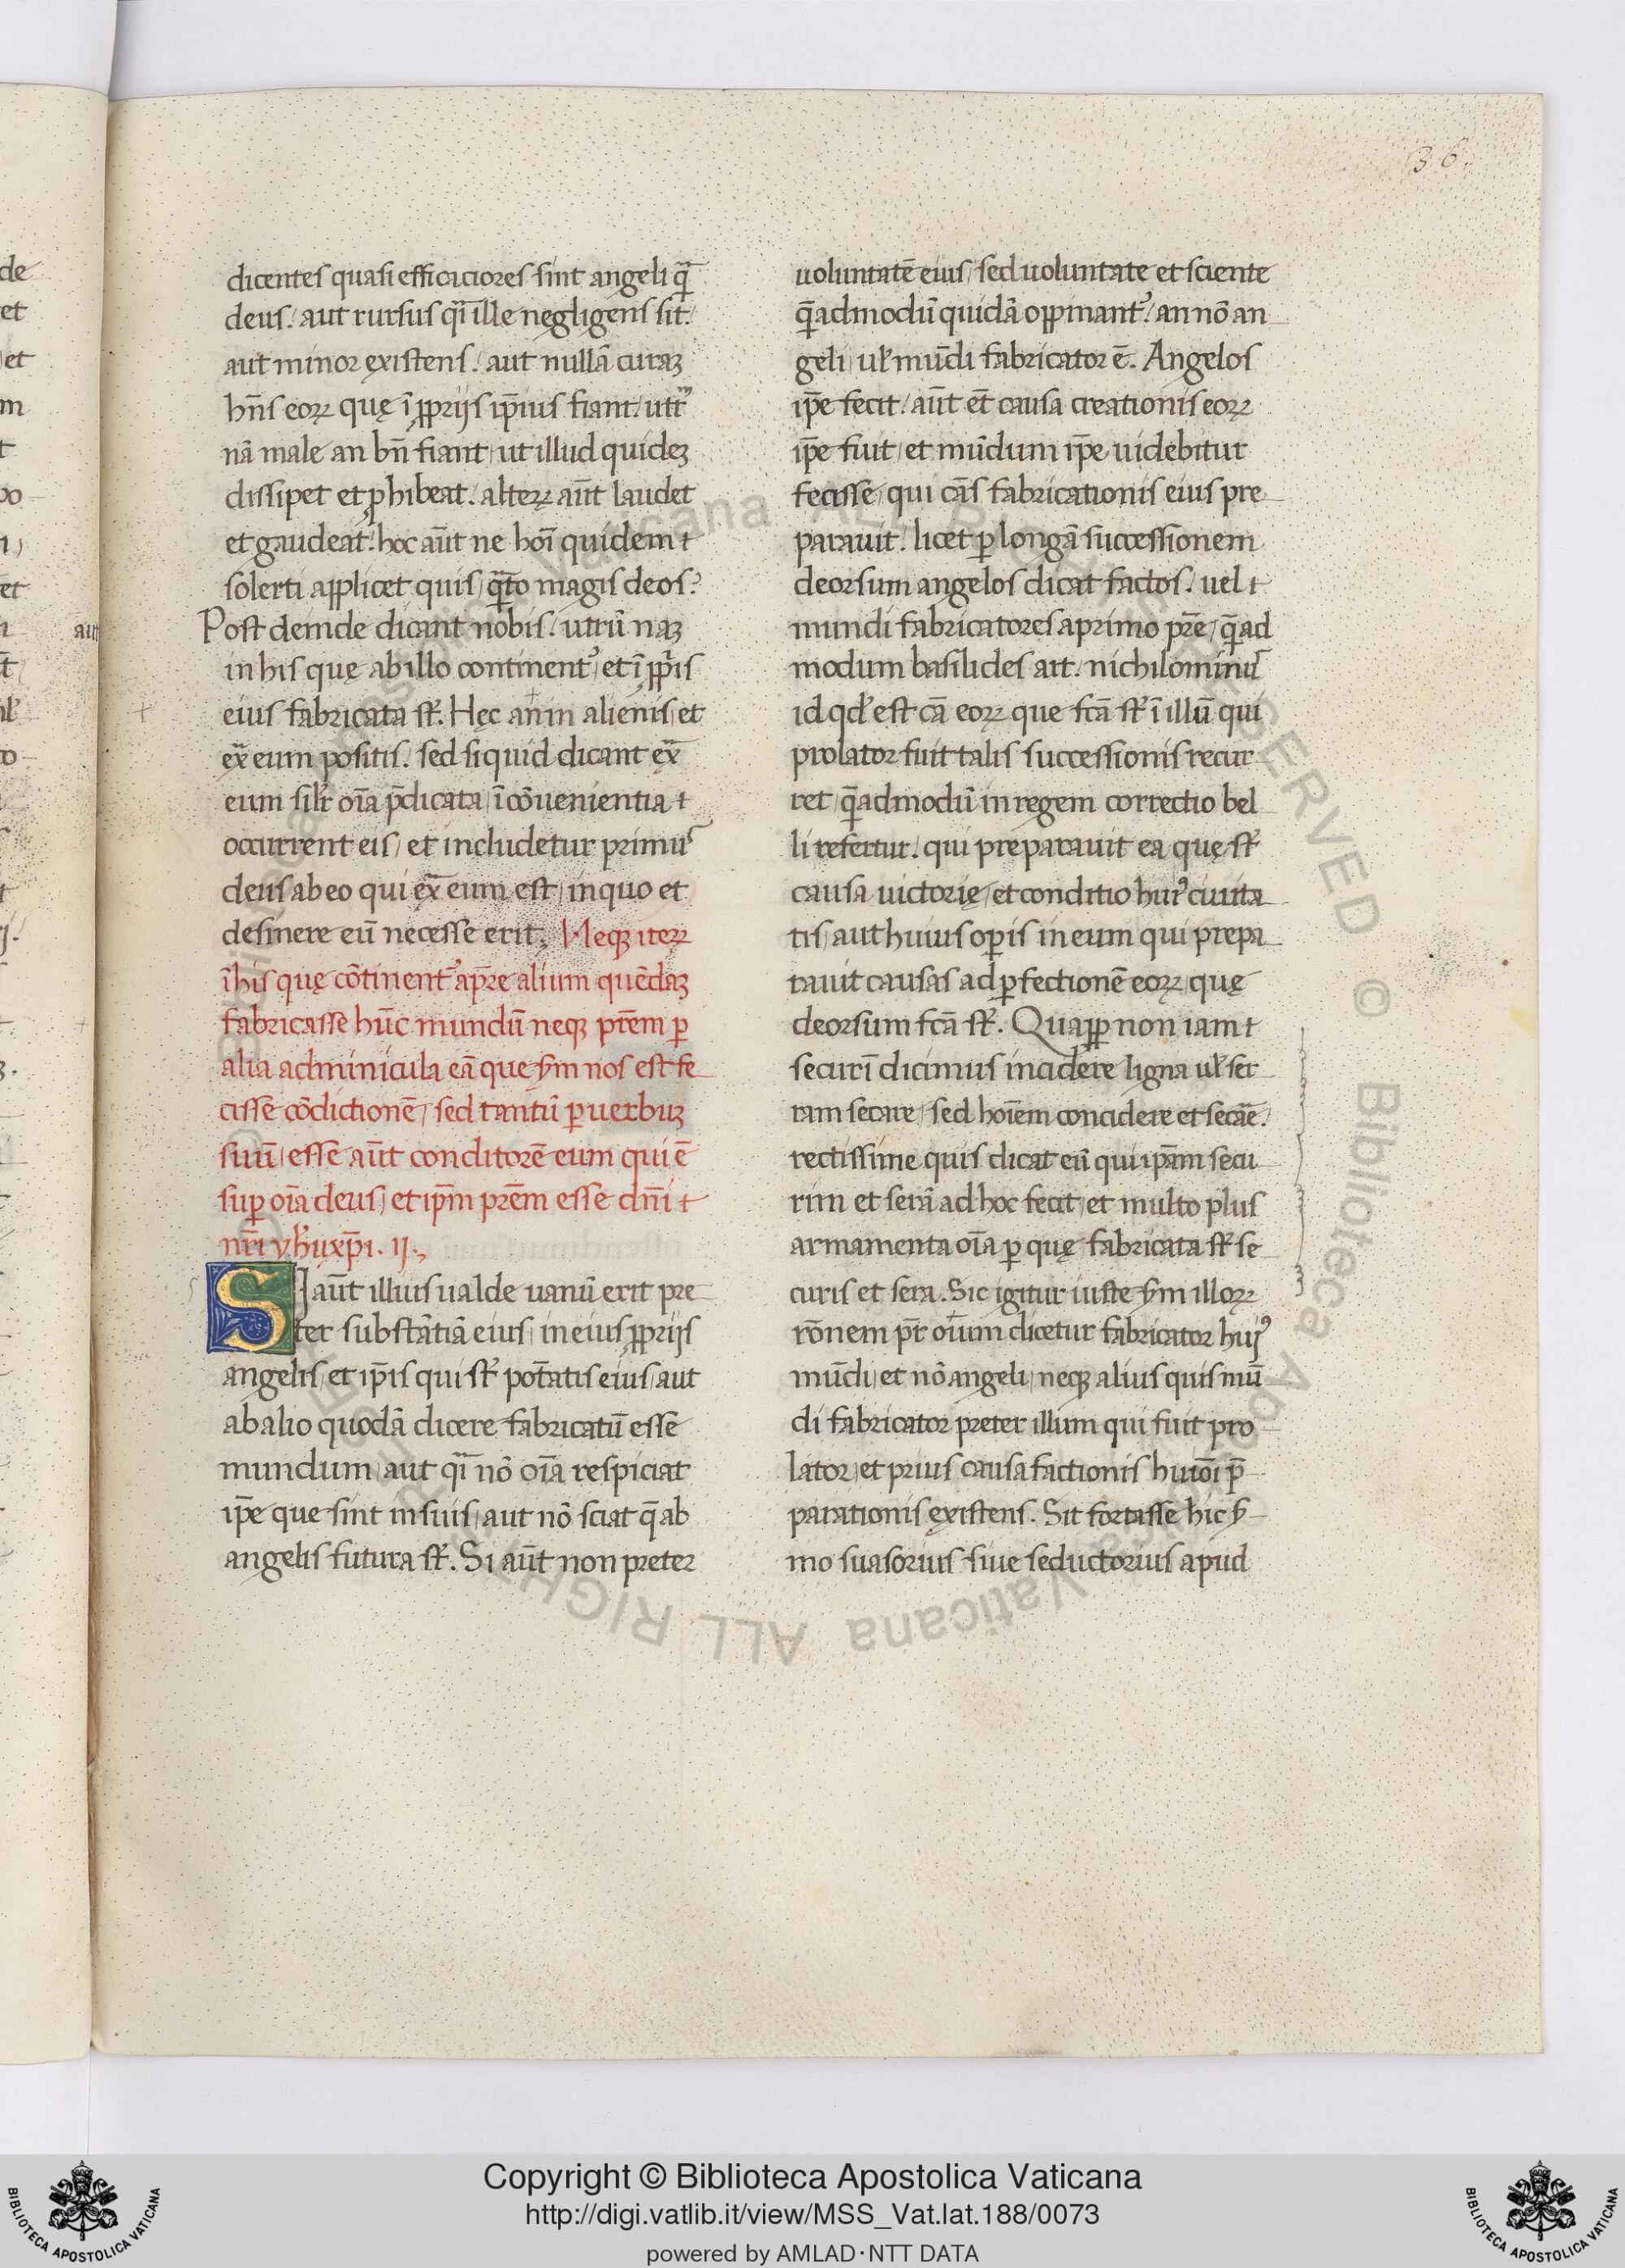 36.
dicentes quasi efficaciores sint angeli q̄ꝫ
deus. aut rursus qm̄ ille negligens sit.
aut minor existens. aut nullā curaꝫ
hn̄s eoꝝ quę ī ꝓprijs ip̄ius fiant. utr
nā male an bn̄ fiant, ut illud quideꝫ
dissipet et ꝓhibeat. alteꝝ aūt laudet
et gaudeat. hoc aūt ne hoī quidem
solerti applicet quis, q̄to magis deos?
Post deinde dicant nobis. utrū naꝫ
in his que ab illo continent᷒, et ī ꝓprīs
eius fabricata sr̄. Hęc an in alienis, et
ex̄ eum positis. sed siquid dicant ex̄
eum silr̄ oīa p̄dicata, īcōuenientia
occurrent eis, et includetur primus
deus ab eo qui ex̄ eum est, in quo et
desinere eū necesse erit. Neqꝫ iteꝝ
ī his quę cōtinent᷒ a pr̄e alium quēdaꝫ
fabricasse hūc mundū neqꝫ prēm ꝑ
alia adminicula eā que sm̄ nos est fe
cisse cōdictionē, sed tantū ꝑ uerbuꝫ
suū, esse aūt conditorē eum qui ē
suꝑ oīa deus, et ip̄m prēm esse dn̄i
nr̄i yh̄u xp̄i. ij.
SI aūt illius ualde uanū erit pre
ter substātiā eius, in eius ꝓprijs
angelis, et ip̄is qui sr̄ potātis eius, aut
ab alio quodā dicere fabricatū esse
mundum, aut qm̄ nō oīa respiciat
ip̄e que sint in suis, aut nō sciat q̄ ab
angelis futura sr̄. Si aūt non preter
uoluntatē eius, sed uoluntate et sciente
q̄admodū quidā oppinant᷒. an nō an
geli, ul̄ mūdi fabricator ē. Angelos
ip̄e fecit. aūt et̄ causa creationis eoꝝ
ip̄e fuit, et mūdum ip̄e uidebitur
fecisse, qui cās fabricationis eius pre
parauit. licet ꝑ longā successionem
deorsum angelos dicat factos. uel
mundi fabricatores a primo pr̄e, q̄ad
modum basilides ait. nichilominus
id qd̄ est cā eoꝝ que fcā sr̄ ī illū qui
prolator fuit talis successionis recur
ret, q̄admodū in regem correctio bel
li refertur. qui preparauit ea quę sr̄
causa uictorię, et conditio hui᷒ ciuita
tis, aut huius oꝑis in eum qui prepa
rauit causas ad ꝑfectionē eoꝝ, quę
deorsum fcā sr̄. Quaꝓꝑ non iam
securī dicimus incidere ligna ul̄ ser
ram secare, sed hoīem concidere et secāe.
rectissime quis dicat eū qui ip̄am secu
rim et serā ad hoc fecit, et multo plus
armamenta oīa ꝑ quę fabricata sr̄ se
curis et sera. Sic igitur iuste sm̄ illoꝝ
rōnem pr̄ oīum dicetur fabricator hui᷒
mūdi, et nō angeli, neqꝫ alius quis mū
di fabricator preter illum qui fuit pro
lator, et prius causa factionis huiōi p̄
parationis ęxistens. Sit fortasse hic s̄
mo suasorius siue seductorius apud
Copyright © Biblioteca Apostolica Vaticana
http://digi.vatlib.it/view/MSS_Vat.lat.188/0073
powered by AMLAD·NTT DATA
BIBLIOTECA APOSTOLICA VATICANA
BIBLIOTECA APOSTOLICA VATICANA